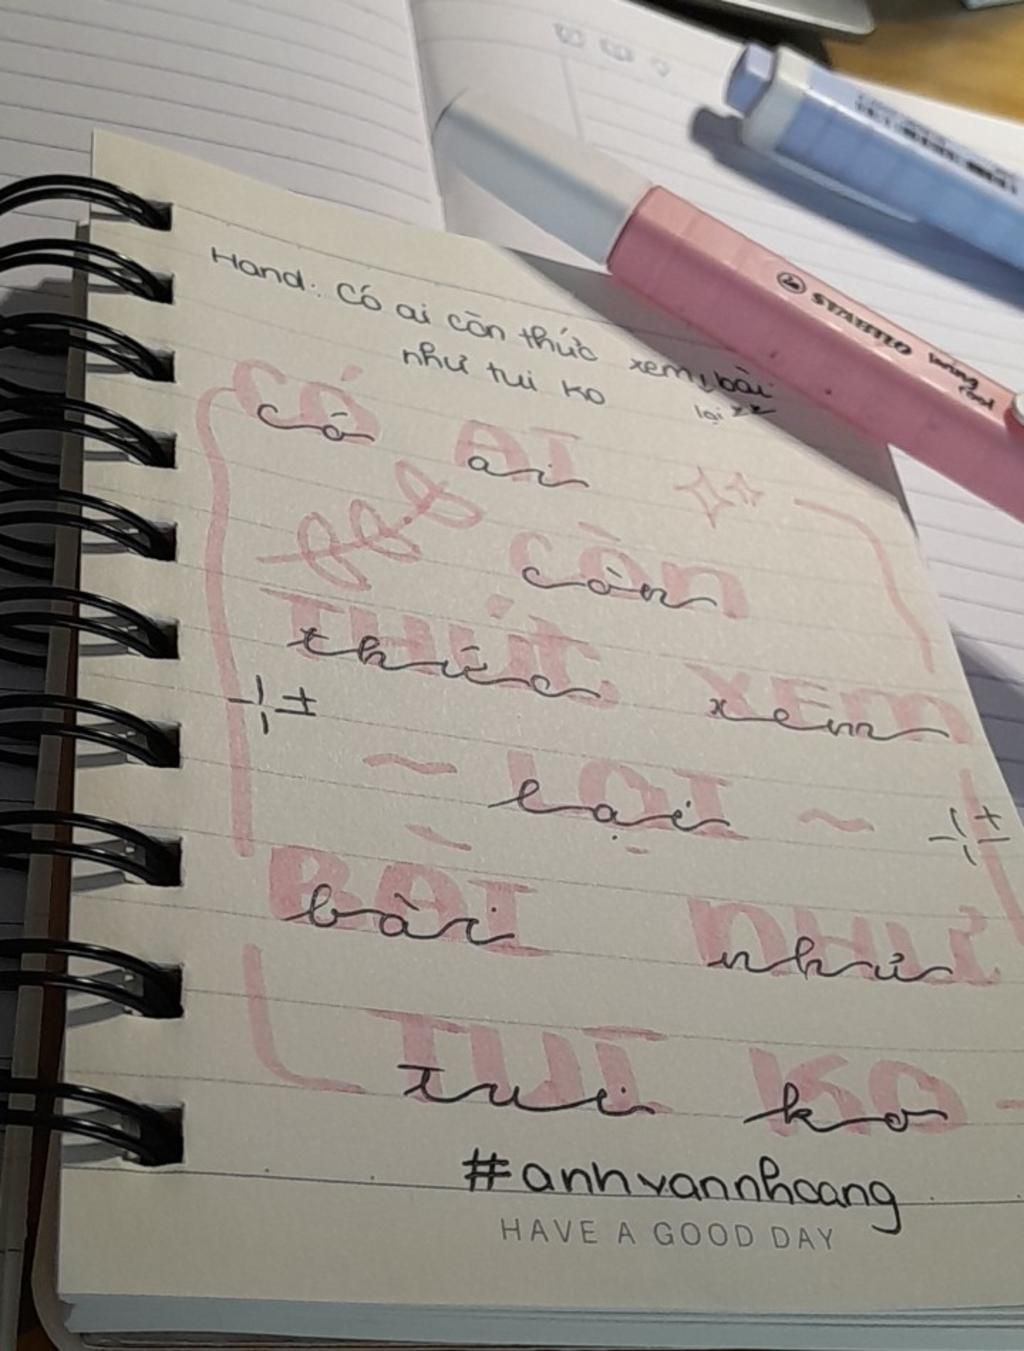 Hand: có ai còn thức xem bài
như tui ko lại
CÓ AI
có ai
CÒN
còn
THỨC XEM
thức xem
~ LẠI ~
lại
BÀI NHƯ
bài như
TUI KO
tui ko
#anhvannhoang
HAVE A GOOD DAY
STABILO swing cool